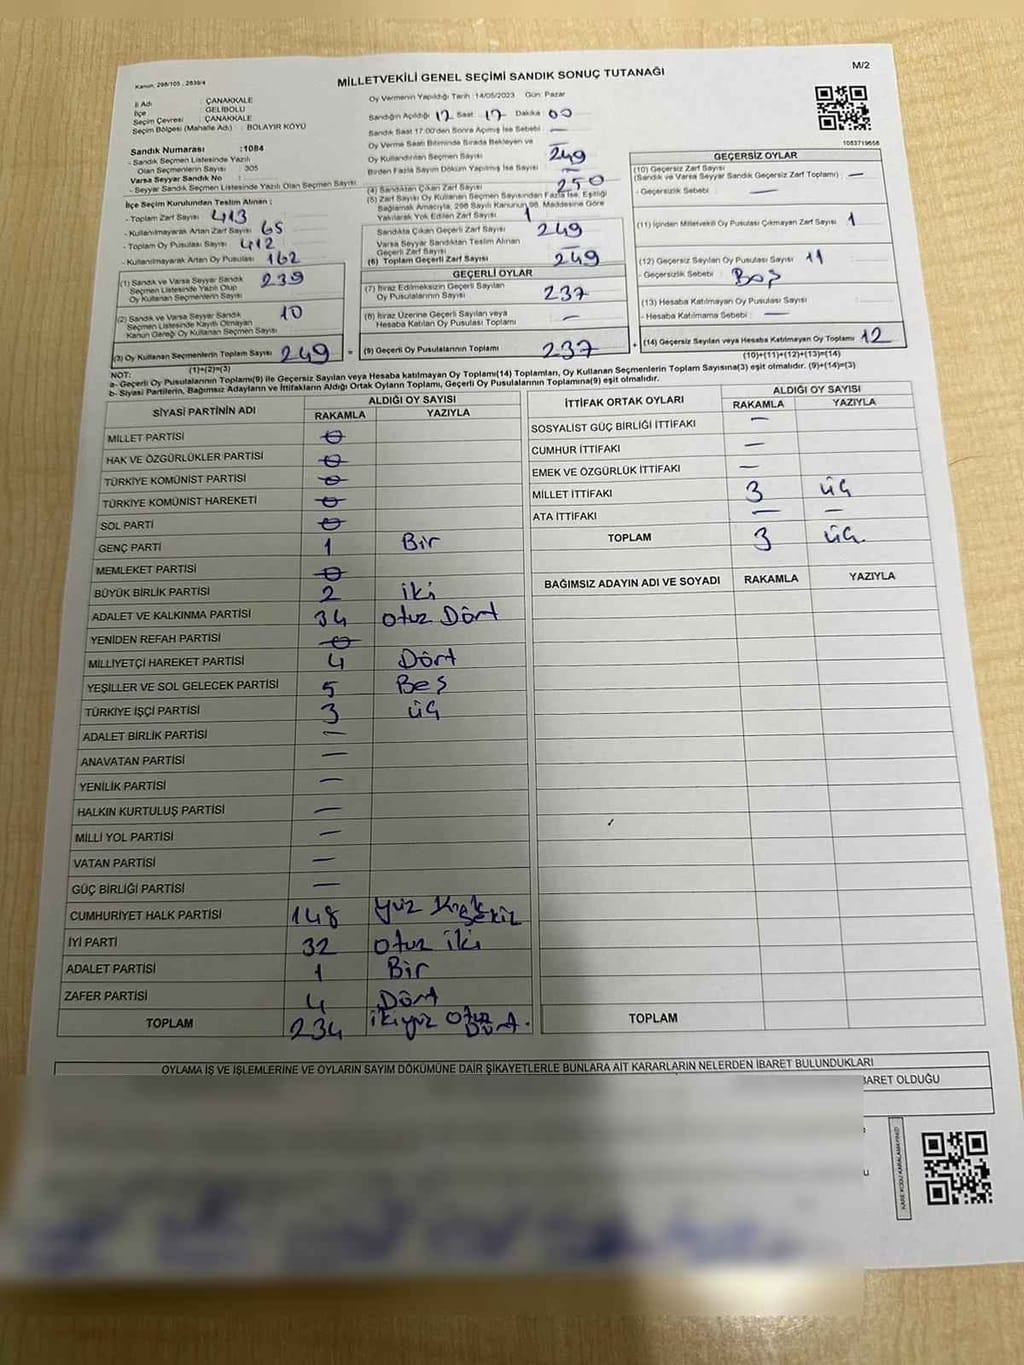 Kanun: 298/105, 2839/4
MİLLETVEKİLİ GENEL SEÇİMİ SANDIK SONUÇ TUTANAĞI
M/2
İl Adı : ÇANAKKALE
İlçe : GELİBOLU
Seçim Çevresi : ÇANAKKALE
Seçim Bölgesi (Mahalle Adı) : BOLAYIR KÖYÜ
Sandık Numarası :1084
- Sandık Seçmen Listesinde Yazılı
Olan Seçmenlerin Sayısı : 305
Varsa Seyyar Sandık No :
- Seyyar Sandık Seçmen Listesinde Yazılı Olan Seçmen Sayısı
İlçe Seçim Kurulundan Teslim Alınan ;
- Toplam Zarf Sayısı 413
- Kullanılmayarak Artan Zarf Sayısı 65
- Toplam Oy Pusulası Sayısı 412
- Kullanılmayarak Artan Oy Pusulası 162
(1) Sandık ve Varsa Seyyar Sandık
Seçmen Listesinde Yazılı Olup
Oy Kullanan Seçmenlerin Sayısı 239
(2) Sandık ve Varsa Seyyar Sandık
Seçmen Listesinde Kayıtlı Olmayan
Kanun Gereği Oy Kullanan Seçmen Sayısı 10
(3) Oy Kullanan Seçmenlerin Toplam Sayısı 249 =
(1)+(2)=(3)
Oy Vermenin Yapıldığı Tarih :14/05/2023 Gün: Pazar
Sandığın Açıldığı 17 Saat 17 Dakika 00
Sandık Saat 17:00'den Sonra Açılmış İse Sebebi : —
Oy Verme Saati Bitiminde Sırada Bekleyen ve
Oy Kullandırılan Seçmen Sayısı —
249
Birden Fazla Sayım Döküm Yapılmış İse Sayısı —
(4) Sandıktan Çıkan Zarf Sayısı 250
(5) Zarf Sayısı Oy Kullanan Seçmen Sayısından Fazla İse, Eşitliği
Sağlamak Amacıyla, 298 Sayılı Kanunun 98. Maddesine Göre
Yakılarak Yok Edilen Zarf Sayısı 1
Sandıkta Çıkan Geçerli Zarf Sayısı 249
Varsa Seyyar Sandıktan Teslim Alınan
Geçerli Zarf Sayısı —
(6) Toplam Geçerli Zarf Sayısı 249
GEÇERLİ OYLAR
(7) İtiraz Edilmeksizin Geçerli Sayılan
Oy Pusulalarının Sayısı 237
(8) İtiraz Üzerine Geçerli Sayılan veya
Hesaba Katılan Oy Pusulası Toplamı —
(9) Geçerli Oy Pusulalarının Toplamı 237 +
1053719656
GEÇERSİZ OYLAR
(10) Geçersiz Zarf Sayısı
(Sandık ve Varsa Seyyar Sandık Geçersiz Zarf Toplamı) : —
- Geçersizlik Sebebi : —
(11) İçinden Milletvekili Oy Pusulası Çıkmayan Zarf Sayısı : 1
(12) Geçersiz Sayılan Oy Pusulası Sayısı : 11
- Geçersizlik Sebebi : Boş
(13) Hesaba Katılmayan Oy Pusulası Sayısı :
- Hesaba Katılmama Sebebi : —
(14) Geçersiz Sayılan veya Hesaba Katılmayan Oy Toplamı 12
(10)+(11)+(12)+(13)=(14)
NOT:
a- Geçerli Oy Pusulalarının Toplamı(9) ile Geçersiz Sayılan veya Hesaba katılmayan Oy Toplamı(14) Toplamları, Oy Kullanan Seçmenlerin Toplam Sayısına(3) eşit olmalıdır. (9)+(14)=(3)
b- Siyasi Partilerin, Bağımsız Adayların ve İttifakların Aldığı Ortak Oyların Toplamı, Geçerli Oy Pusulalarının Toplamına(9) eşit olmalıdır.
SİYASİ PARTİNİN ADI ALDIĞI OY SAYISI
RAKAMLA YAZIYLA
MİLLET PARTİSİ 0
HAK VE ÖZGÜRLÜKLER PARTİSİ 0
TÜRKİYE KOMÜNİST PARTİSİ 0
TÜRKİYE KOMÜNİST HAREKETİ 0
SOL PARTİ 0
GENÇ PARTİ 1 Bir
MEMLEKET PARTİSİ 0
BÜYÜK BİRLİK PARTİSİ 2 iki
ADALET VE KALKINMA PARTİSİ 34 otuz Dört
YENİDEN REFAH PARTİSİ 0
MİLLİYETÇİ HAREKET PARTİSİ 4 Dört
YEŞİLLER VE SOL GELECEK PARTİSİ 5 Beş
TÜRKİYE İŞÇİ PARTİSİ 3 üç
ADALET BİRLİK PARTİSİ —
ANAVATAN PARTİSİ —
YENİLİK PARTİSİ —
HALKIN KURTULUŞ PARTİSİ —
MİLLİ YOL PARTİSİ —
VATAN PARTİSİ —
GÜÇ BİRLİĞİ PARTİSİ —
CUMHURİYET HALK PARTİSİ 148 yüz Kırk Sekiz
İYİ PARTİ 32 otuz iki
ADALET PARTİSİ 1 Bir
ZAFER PARTİSİ 4 Dört
TOPLAM 234 ikiyüz otuz Dört.
İTTİFAK ORTAK OYLARI ALDIĞI OY SAYISI
RAKAMLA YAZIYLA
SOSYALİST GÜÇ BİRLİĞİ İTTİFAKI —
CUMHUR İTTİFAKI —
EMEK VE ÖZGÜRLÜK İTTİFAKI —
MİLLET İTTİFAKI 3 üç
ATA İTTİFAKI — —
TOPLAM 3 üç.
BAĞIMSIZ ADAYIN ADI VE SOYADI RAKAMLA YAZIYLA
TOPLAM
OYLAMA İŞ VE İŞLEMLERİNE VE OYLARIN SAYIM DÖKÜMÜNE DAİR ŞİKAYETLERLE BUNLARA AİT KARARLARIN NELERDEN İBARET BULUNDUKLARI
BARET OLDUĞU
KARE KODU KARALAMAYINIZ!